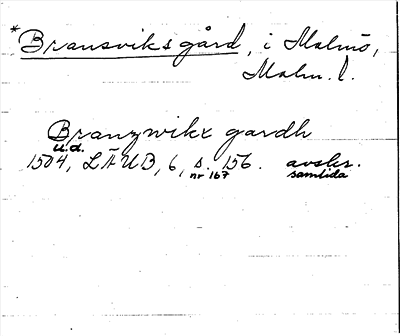 * Bransviksgård, i Malmö,
Malm. l.
Branzwikx gardh
u.d.
1504, LÄUB, 6, s. 156. avskr.
nr 167 samtida